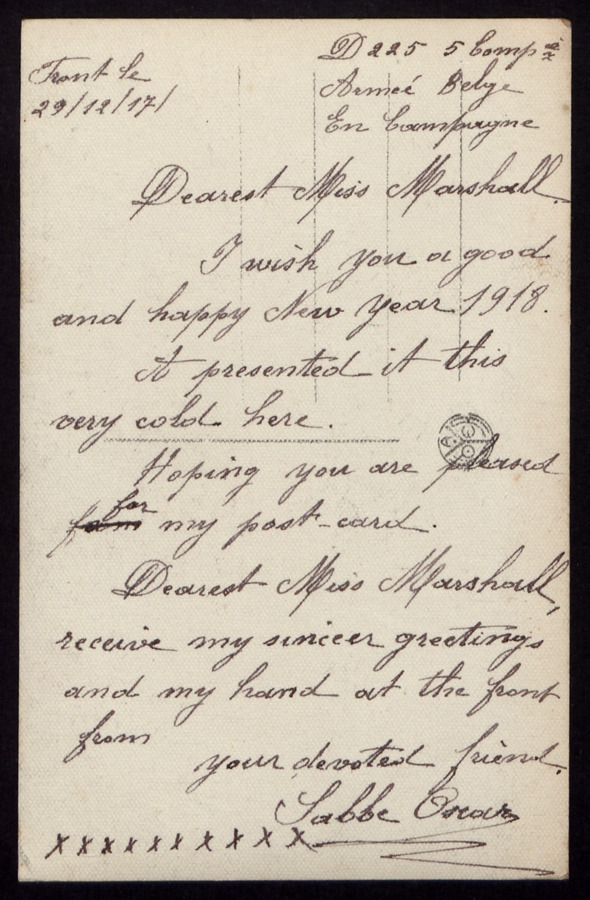 Front le
29/12/17/
D 225 5 Comp ie
Armeé Belge
En Campagne
Dearest Miss Marshall.
I wish you a good
and happy New Year 1918.
At presented it this
very cold here.
Hoping you are pleased
for
from my post-card.
Dearest Miss Marshall,
receive my sinceer greetings
and my hand at the front
from
your devoted friend.
Sabbe Oscar
x x x x x x x x x x